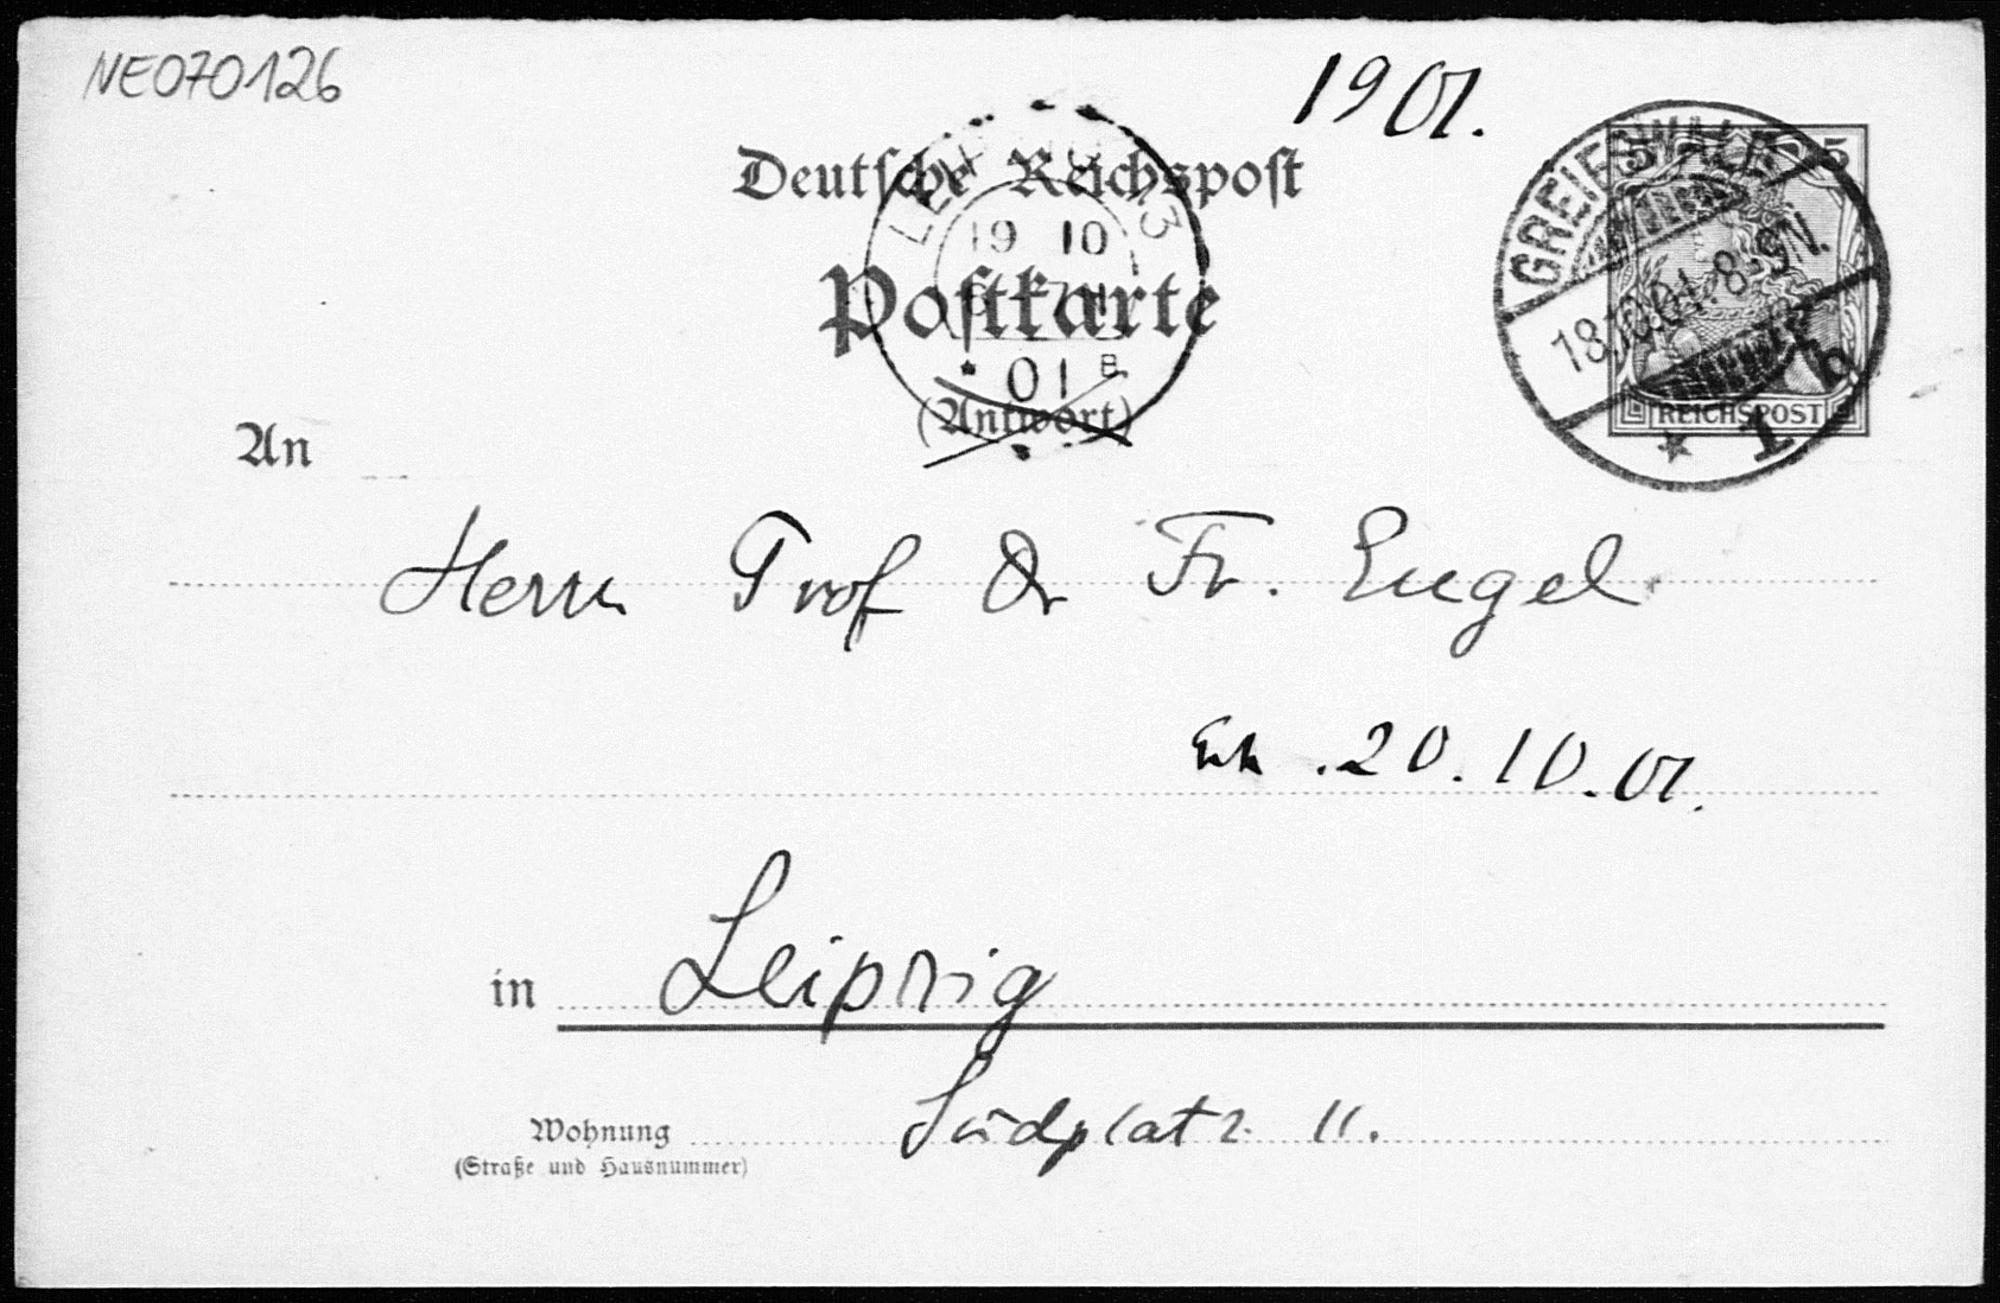 NE070126
1901.
Deutsche Reichspost
5 5
GREIFSWALD
18.10.01.8-9N.
1 b
REICHSPOST
LEIPZIG 13
19 10
* 01 B
Postkarte
(Antwort)
An
Herrn Prof Dr Fr. Engel
20.10.01.
in Leipzig
Wohnung Südplatz 11.
(Straße und Hausnummer)